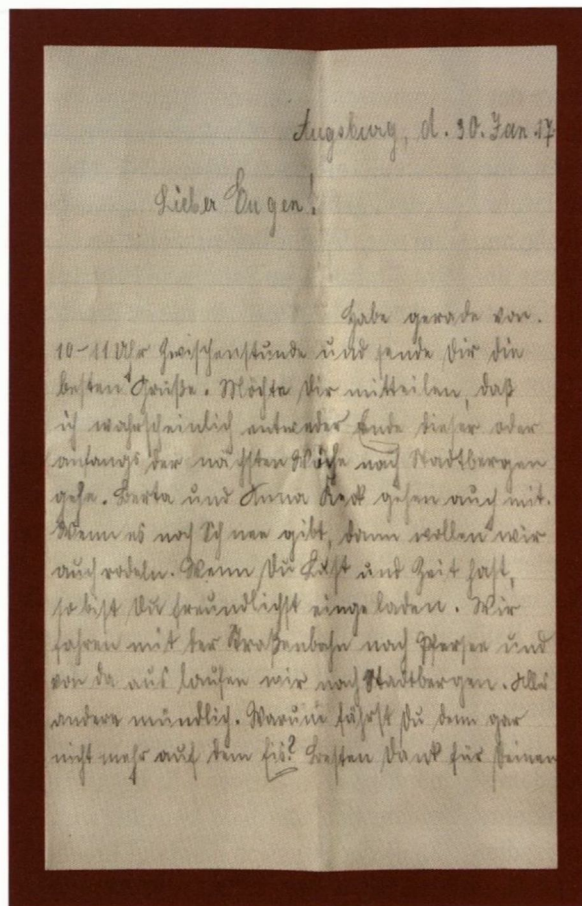 Augsburg, d. 30. Jan. 17
Lieber Eugen!
Habe gerade von
10-11 Uhr Zwischenstunde und sende Dir die
besten Grüße. Möchte Dir mitteilen, daß
ich wahrscheinlich entweder Ende dieser oder
anfangs der nächsten Woche nach Stadtbergen
gehe. Berta und Anna Keck gehen auch mit.
Wenn es noch Schnee gibt, dann wollen wir
auch rodeln. Wenn Du Lust und Zeit hast,
so bist Du freundlichst eingeladen. Wir
fahren mit der Straßenbahn nach Pfersee und
von da aus laufen wir nach Stadtbergen. Alles
andere mündlich. Warum fährst Du denn gar
nicht mehr auf dem Eis? Besten Dank für Deinen